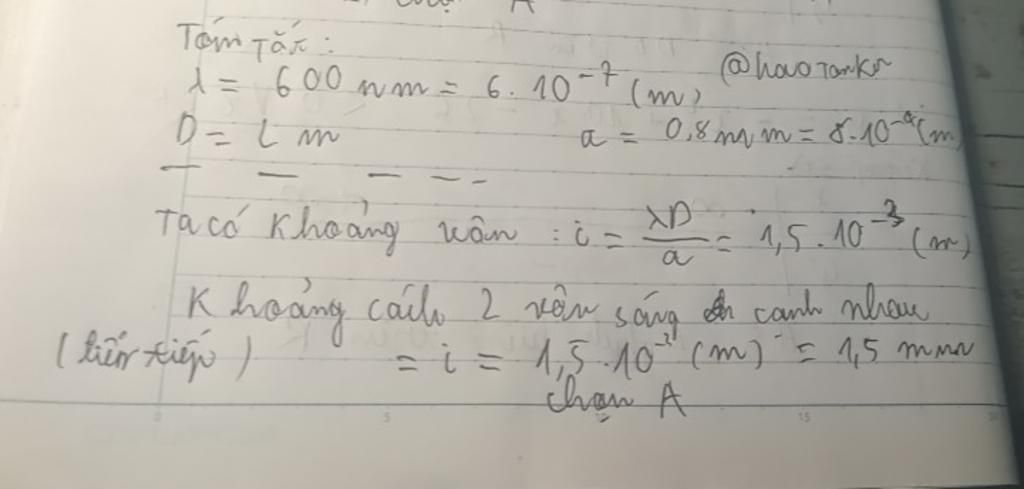 A
Tóm Tắt:
λ = 600 nm = 6.10⁻⁷ (m)
@haoTankr
D = 2 m
a = 0,8 mm = 8.10⁻⁴ (m)
Ta có Khoảng vân : i = λD/a = 1,5.10⁻³ (m)
Khoảng cách 2 vân sáng cạnh nhau
(liên tiếp) = i = 1,5.10⁻³ (m) = 1,5 mm
chọn A
0 5 15